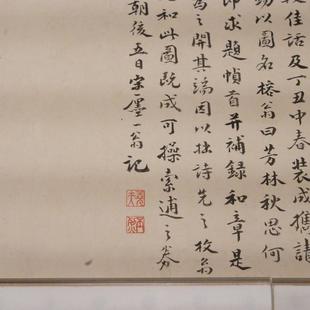 佳話及丁丑中春裝成攜請
勖以圖名榕翁曰芳林秋思何
即求題幀首并補錄和章是
為之開其端因以拙詩先之枚翁
和此圖既成可操索逋之券
朝後五日宗墨一翁記